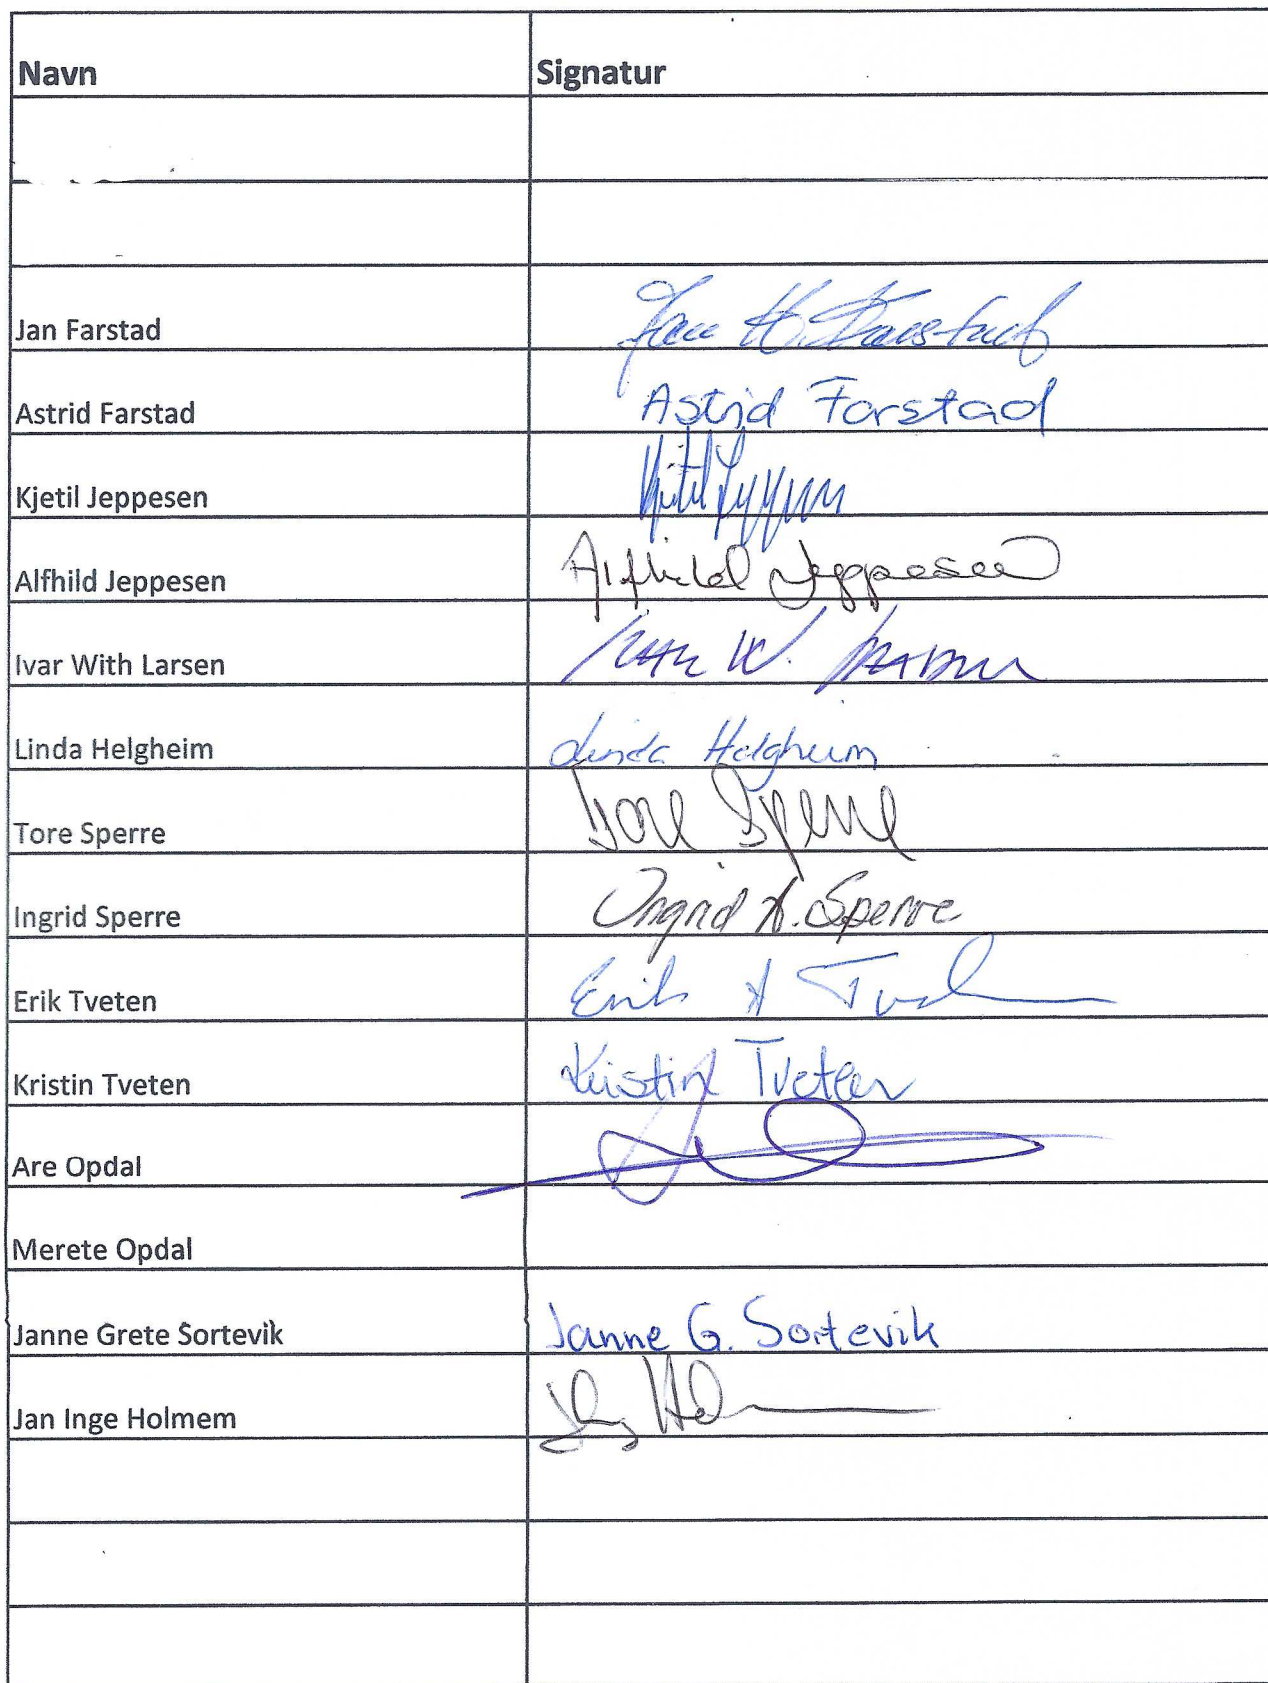 Navn Signatur
Jan Farstad Jan H. Farstad
Astrid Farstad Astrid Farstad
Kjetil Jeppesen
Alfhild Jeppesen Alfhild Jeppesen
Ivar With Larsen Ivar W. Larsen
Linda Helgheim Linda Helgheim
Tore Sperre Tore Sperre
Ingrid Sperre Ingrid A. Sperre
Erik Tveten Erik A Tveten
Kristin Tveten Kristin Tveten
Are Opdal
Merete Opdal
Janne Grete Sortevik Janne G. Sortevik
Jan Inge Holmem